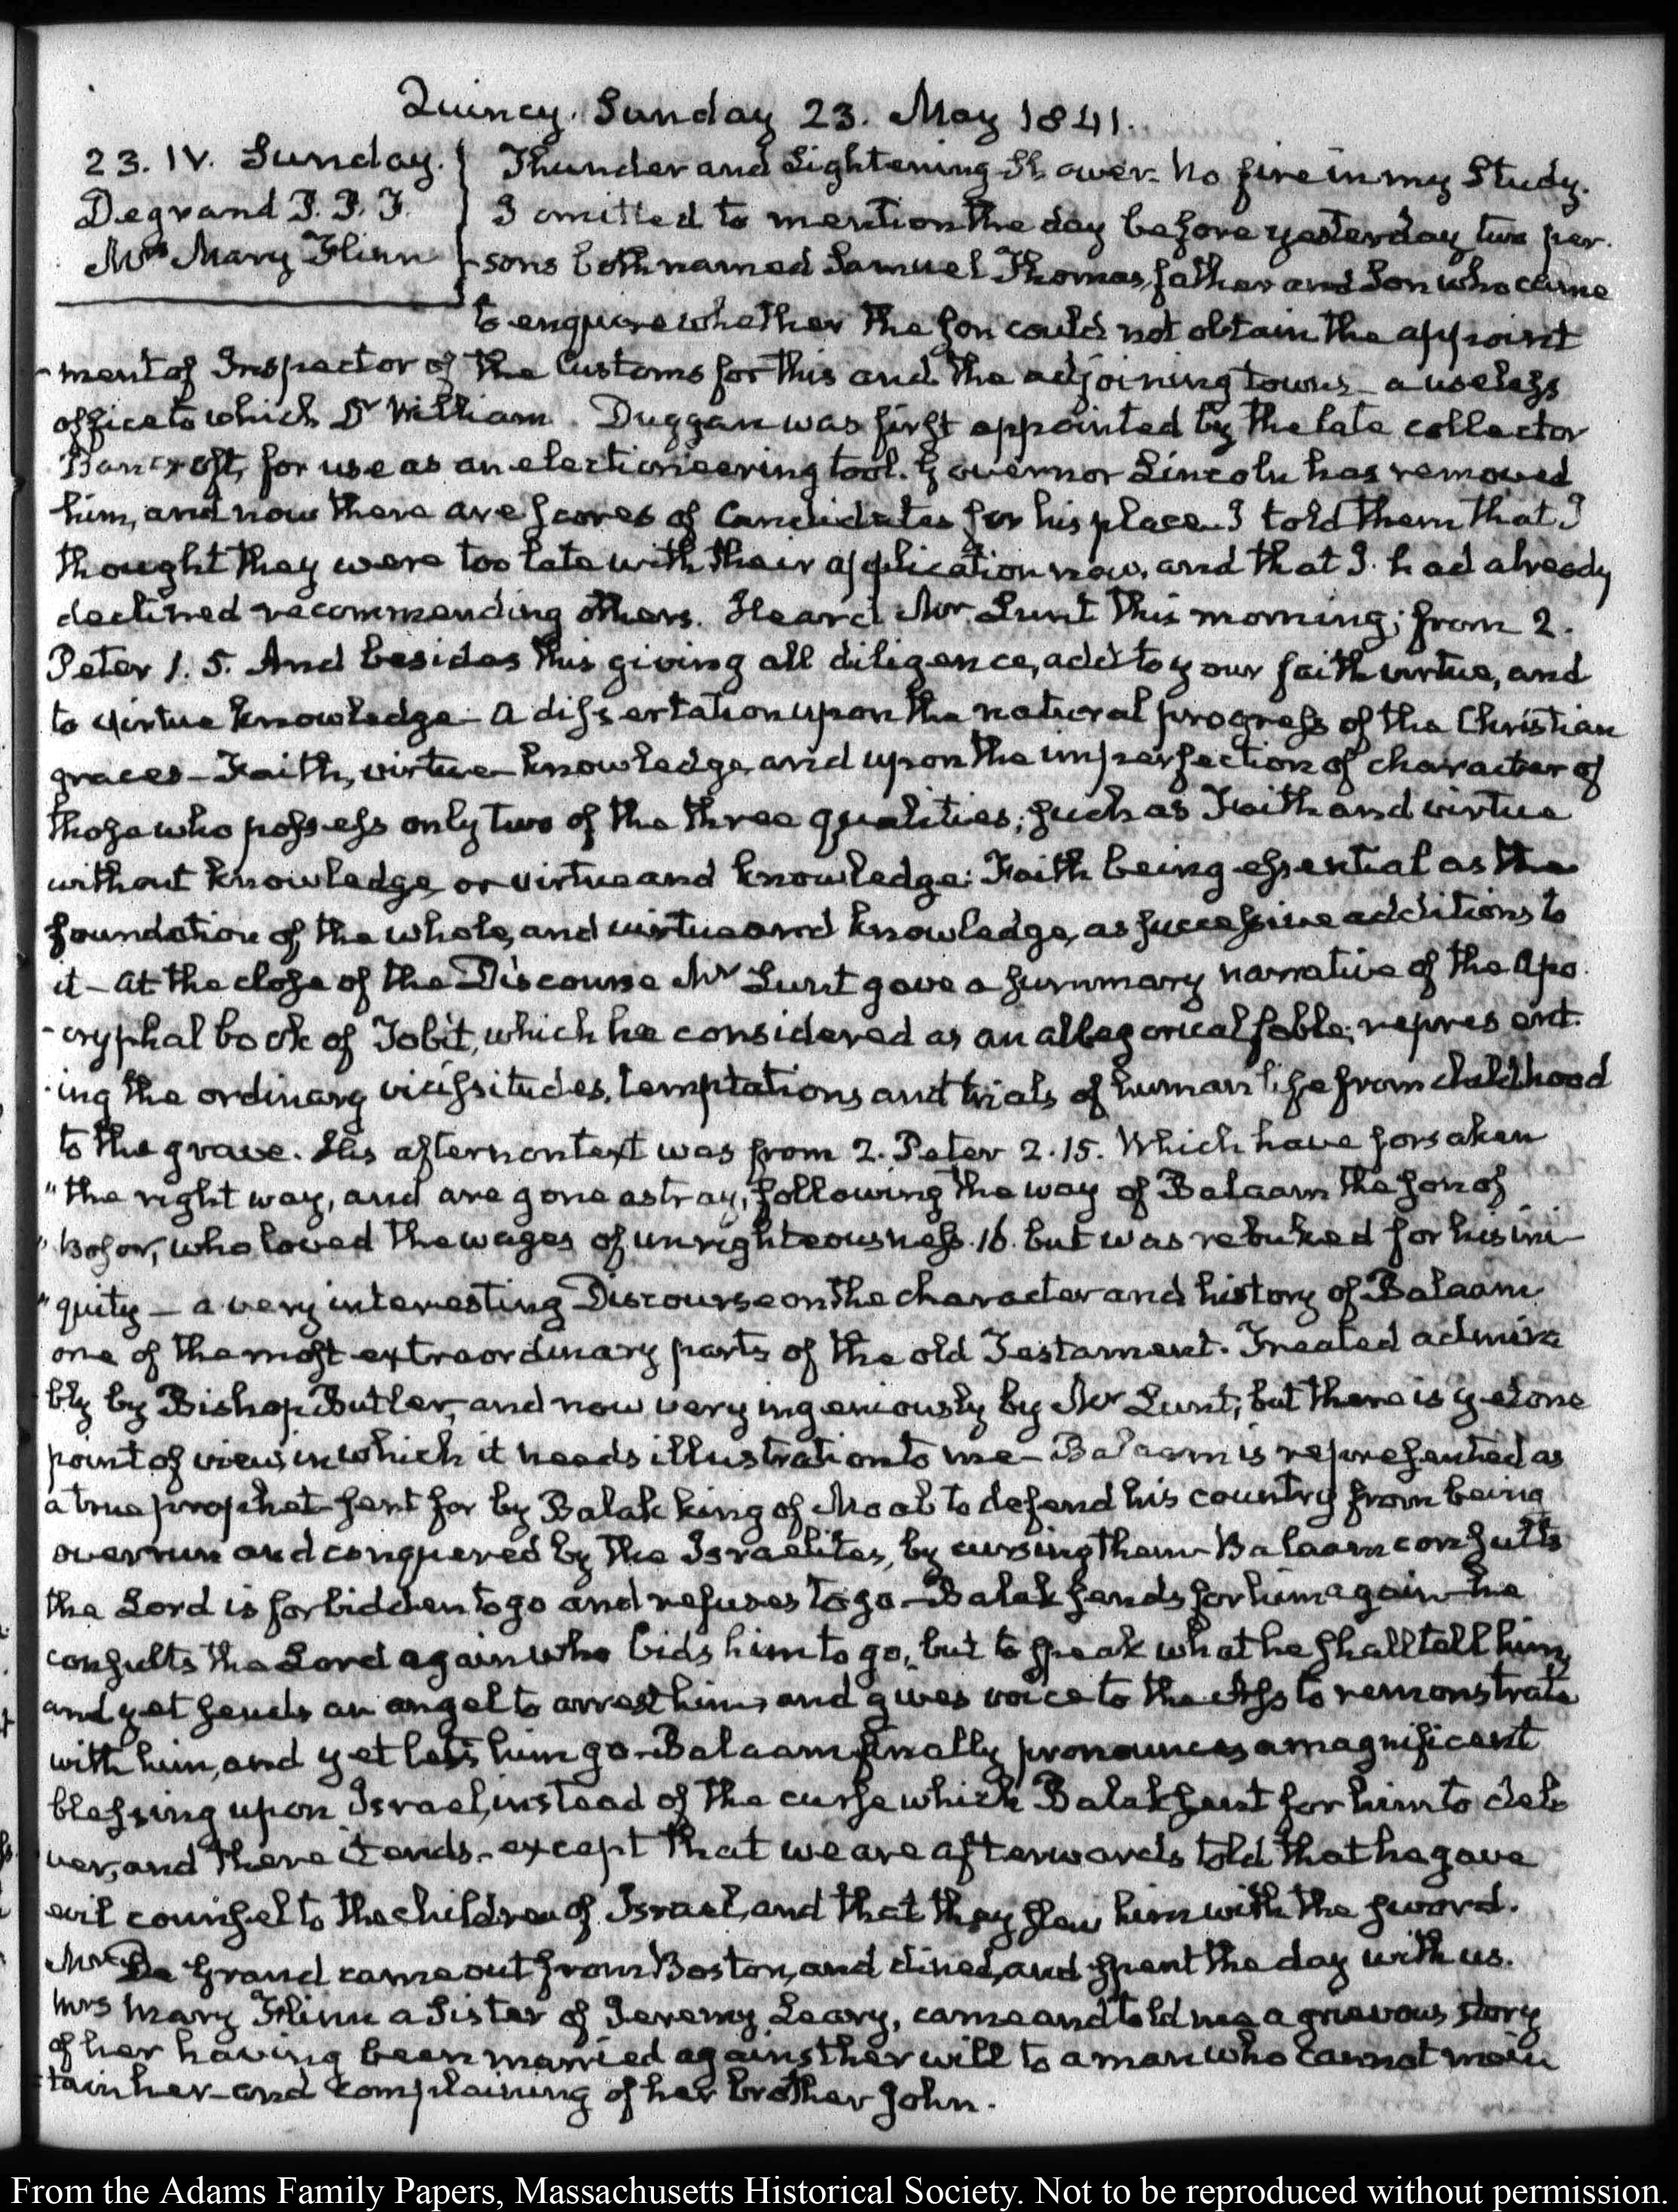 Quincy. Sunday 23. May 1841.
23. IV. Sunday.
Degrand P. P. F.
Mrs Mary Flinn
Thunder and Lightening Shower. No fire in my Study.
I omitted to mention the day before yesterday two per-
-sons both named Samuel Thomas, father and Son who came
to enquire whether the son could not obtain the appoint
-ment of Inspector of the Customs for this and the adjoining towns - a useless
office to which Dr William Duggan was first appointed by the late collector
Bancroft, for use as an electioneering tool. Governor Lincoln has removed
him, and now there are scores of Candidates for his place. I told them that I
thought they were too late with their application now, and that I had already
declined recommending others. Heard Mr Lunt this morning; from 2.
Peter 1. 5. And besides this giving all diligence, add to your faith virtue, and
to virtue knowledge - A dissertation upon the natural progress of the Christian
graces - Faith, virtue - knowledge, and upon the imperfection of character of
those who possess only two of the three qualities; such as Faith and virtue
without knowledge, or virtue and knowledge: Faith being essential as the
foundation of the whole, and virtue and knowledge, as successive additions to
it - At the close of the Discourse Mr Lunt gave a summary narrative of the Apo-
-cryphal book of Tobit, which he considered as an allegorical fable; represent-
-ing the ordinary vicissitudes, temptations and trials of human life from childhood
to the grave. His afternon text was from 2. Peter 2. 15. Which have forsaken
"the right way, and are gone astray, following the way of Balaam the son of
"Bosor, who loved the wages of unrighteousness. 16. but was rebuked for his ini-
"quity - a very interesting Discourse on the character and history of Balaam
one of the most extraordinary parts of the old Testament. Treated admira
bly by Bishop Butler, and now very ingeniously by Mr Lunt; but there is yet one
point of view in which it needs illustration to me - Balaam is represented as
a true prophet - sent for by Balak king of Moab to defend his country from being
overrun and conquered by the Israelites, by cursing them - Balaam consults
the Lord is forbidden to go and refuses to go - Balak sends for him again - he
consults the Lord again who bids him to go, but to speak what he shall tell him,
and yet sends an angel to arrest him, and gives voice to the Ass to remonstrate
with him, and yet lets him go - Balaam finally pronounces a magnificent
blessing upon Israel, instead of the curse which Balak sent for him to deli
ver, and there it ends - except that we are afterwards told that he gave
evil counsel to the children of Israel, and that they slew him with the sword.
Mr De Grand came out from Boston, and dined, and spent the day with us.
Mrs Mary Flinn a Sister of Jeremy Leary, came and told me a grievous story
of her having been married against her will to a man who cannot main
-tain her - and complaining of her brother John.
From the Adams Family Papers, Massachusetts Historical Society. Not to be reproduced without permission.